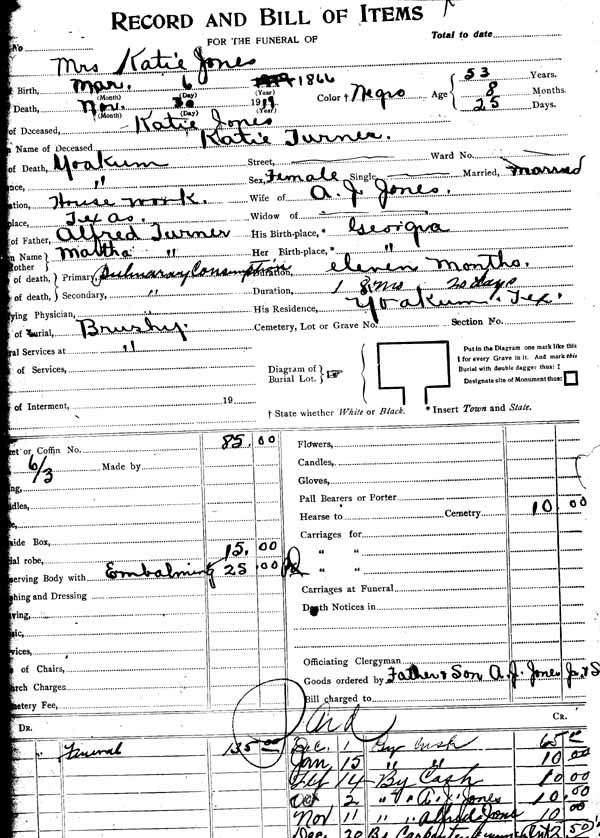 RECORD AND BILL OF ITEMS
No
FOR THE FUNERAL OF
Total to date
Mrs Katie Jones
Birth, Mar. 6 1866
(Month) (Day) (Year)
Color † Negro Age 53 Years.
8 Months.
25 Days.
Death, Nov. 30 1919
(Month) (Day) (Year)
of Deceased, Katie Jones
Name of Deceased, Katie Turner.
of Death, Yoakum Street, Ward No.
nce, " Sex, Female Single, Married, married
tion, House work. Wife of A. J. Jones.
place, Texas. Widow of
of Father, Alfred Turner His Birth-place,* Georgia
n Name Mother Martha " Her Birth-place,* "
of death, Primary, Pulmanary Consumption Duration, eleven months.
of death, Secondary, " Duration, 1 8 mo 20 days
ying Physician, " His Residence, Yoakum. Tex.
of Burial, Brushy. Cemetery, Lot or Grave No. Section No.
ral Services at "
of Services,
Diagram of Burial Lot.
Put in the Diagram one mark like this
I for every Grave in it. And mark this
Burial with double dagger thus: ‡
Designate site of Monument thus:
of Interment, 19
† State whether White or Black. * Insert Town and State.
et or Coffin No. 85.00 Flowers,
6/3 Made by Candles,
ing, Gloves,
dles, Pall Bearers or Porter
e, Hearse to Cemetry 10 00
side Box, Carriages for
ial robe, 15.00 " "
serving Body with Embalming 25.00 " "
shing and Dressing Carriages at Funeral
ving, Death Notices in
sic,
vices,
of Chairs, Officiating Clergyman
urch Charges Goods ordered by Father & Son A. J. Jones Jr. & S
metery Fee, Bill charged to
DR. CR.
" Funeral 135 00 Dec. 1 By Cash 65
Jan 15 " " 10 00
Feb 14 By Cash 10 00
Oct 2 " " A. J. Jones 10.00
Nov 11 " " Alfred Jone 10 00
Dec. 20 By